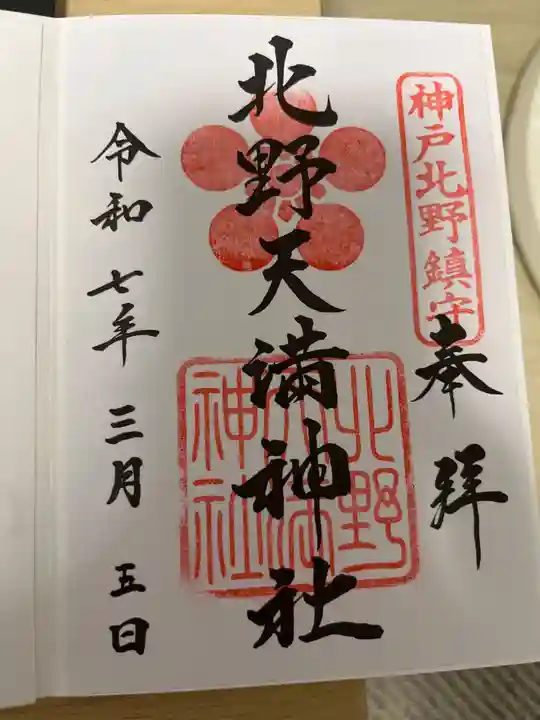 神戸北野鎮守
奉拝
北野天満神社
北野天満神社
令和七年三月五日